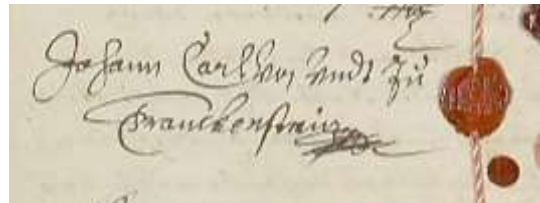 Johann Carl von und zu
Franckenstein